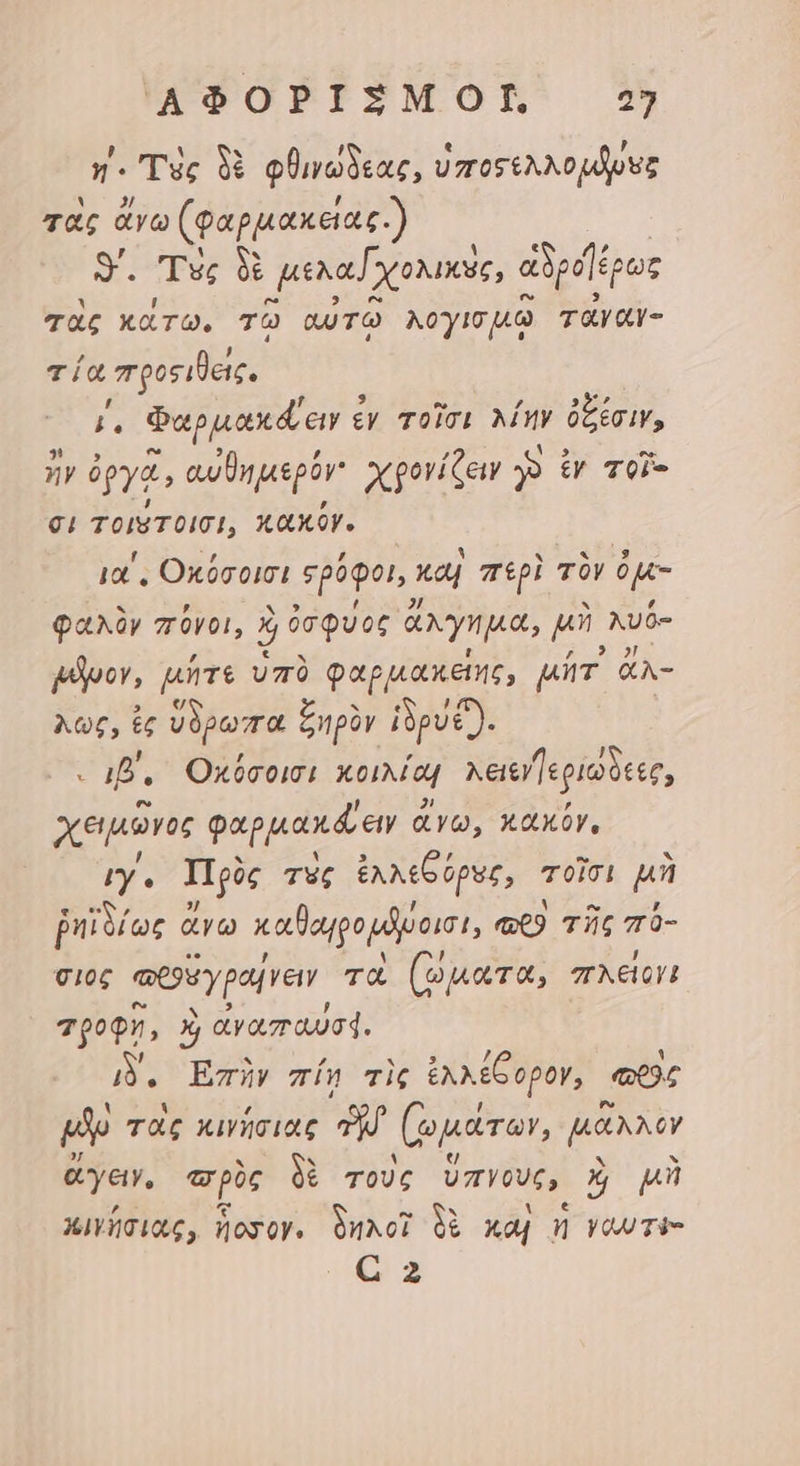 ΑΦΟΡΙΣΜΟΙ. 27
η΄. Τοὺς δὲ φθινώδεας, ὑποστελλομένους
τὰς ἄνω (φαρμακείας.)
θ΄. Τοὺς δὲ μελαγχολικοὺς, ἁδροτέρως
τὰς κάτω. τῷ αὐτῷ λογισμῷ τἀναν-
τία προστιθείς.
ι΄. Φαρμακεύειν ἐν τοῖσι λίην ὀξέσιν,
ἢν ὀργᾷ, αὐθημερόν· χρονίζειν γὰρ ἐν τοῖ-
σι τοιούτοισι, κακόν.
ια΄. Οκόσοισι στρόφοι, καὶ περὶ τὸν ὀμ-
φαλὸν πόνοι, καὶ ὀσφύος ἄλγημα, μὴ λυό-
μενον, μήτε ὑπὸ φαρμακείης, μήτ᾽ ἄλ-
λως, ἐς ὕδρωπα ξηρὸν ἱδρύεται.
ιβ΄. Οκόσοισι κοιλίαι λειεντεριώδεες,
χειμῶνος φαρμακεύειν ἄνω, κακόν.
ιγ΄. Πρὸς τοὺς ἑλλεβόρους, τοῖσι μὴ
ῥηϊδίως ἄνω καθαιρομένοισι, πρὸ τῆς πό-
σιος προϋγραίνειν τὰ σώματα, πλείονι
τροφῇ, καὶ ἀναπαύσει.
ιδ΄. Επὴν πίῃ τὶς ἑλλέβορον, πρὸς
μὲν τὰς κινήσιας τῶν σωμάτων, μᾶλλον
ἄγειν. πρὸς δὲ τοὺς ὕπνους, καὶ μὴ
κινήσιας, ἧσσον. δηλοῖ δὲ καὶ ἡ ναυτι-
C 2